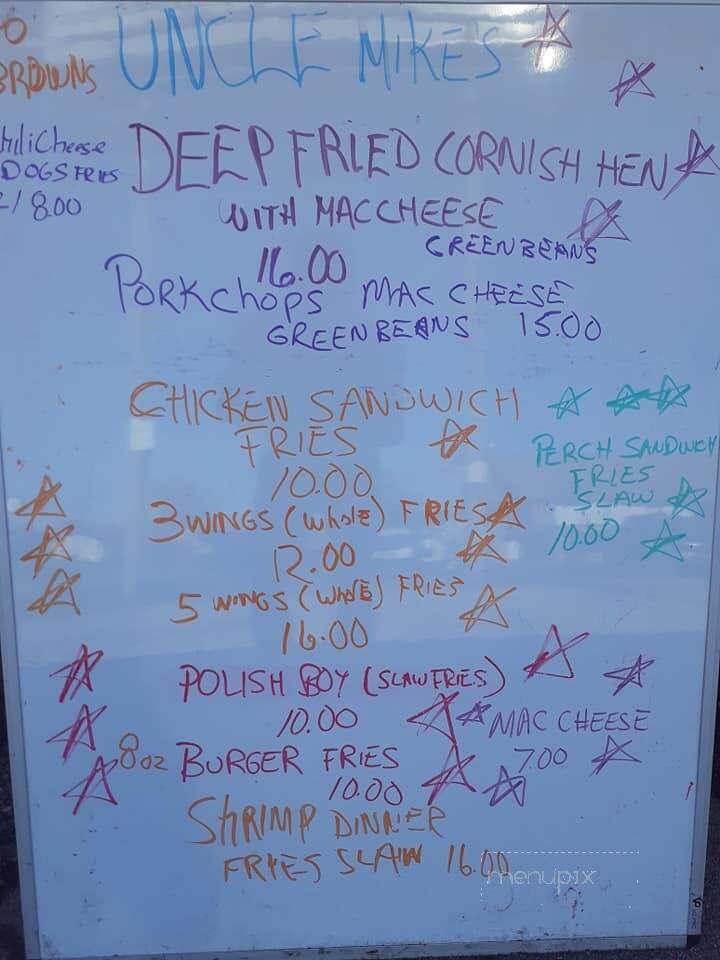 UNCLE MIKE'S
BROWNS
Chili Cheese
DOGS FRIES
2/8.00
DEEP FRIED CORNISH HEN
WITH MAC CHEESE
GREEN BEANS
16.00
PORKCHOPS MAC CHEESE
GREEN BEANS 15.00
CHICKEN SANDWICH
FRIES
10.00
PERCH SANDWICH
FRIES
SLAW
10.00
3 WINGS (WHOLE) FRIES
12.00
5 WINGS (WHOLE) FRIES
16.00
POLISH BOY (SLAW FRIES)
10.00
MAC CHEESE
7.00
8oz BURGER FRIES
10.00
SHRIMP DINNER
FRYES SLAW 16.00
menupix